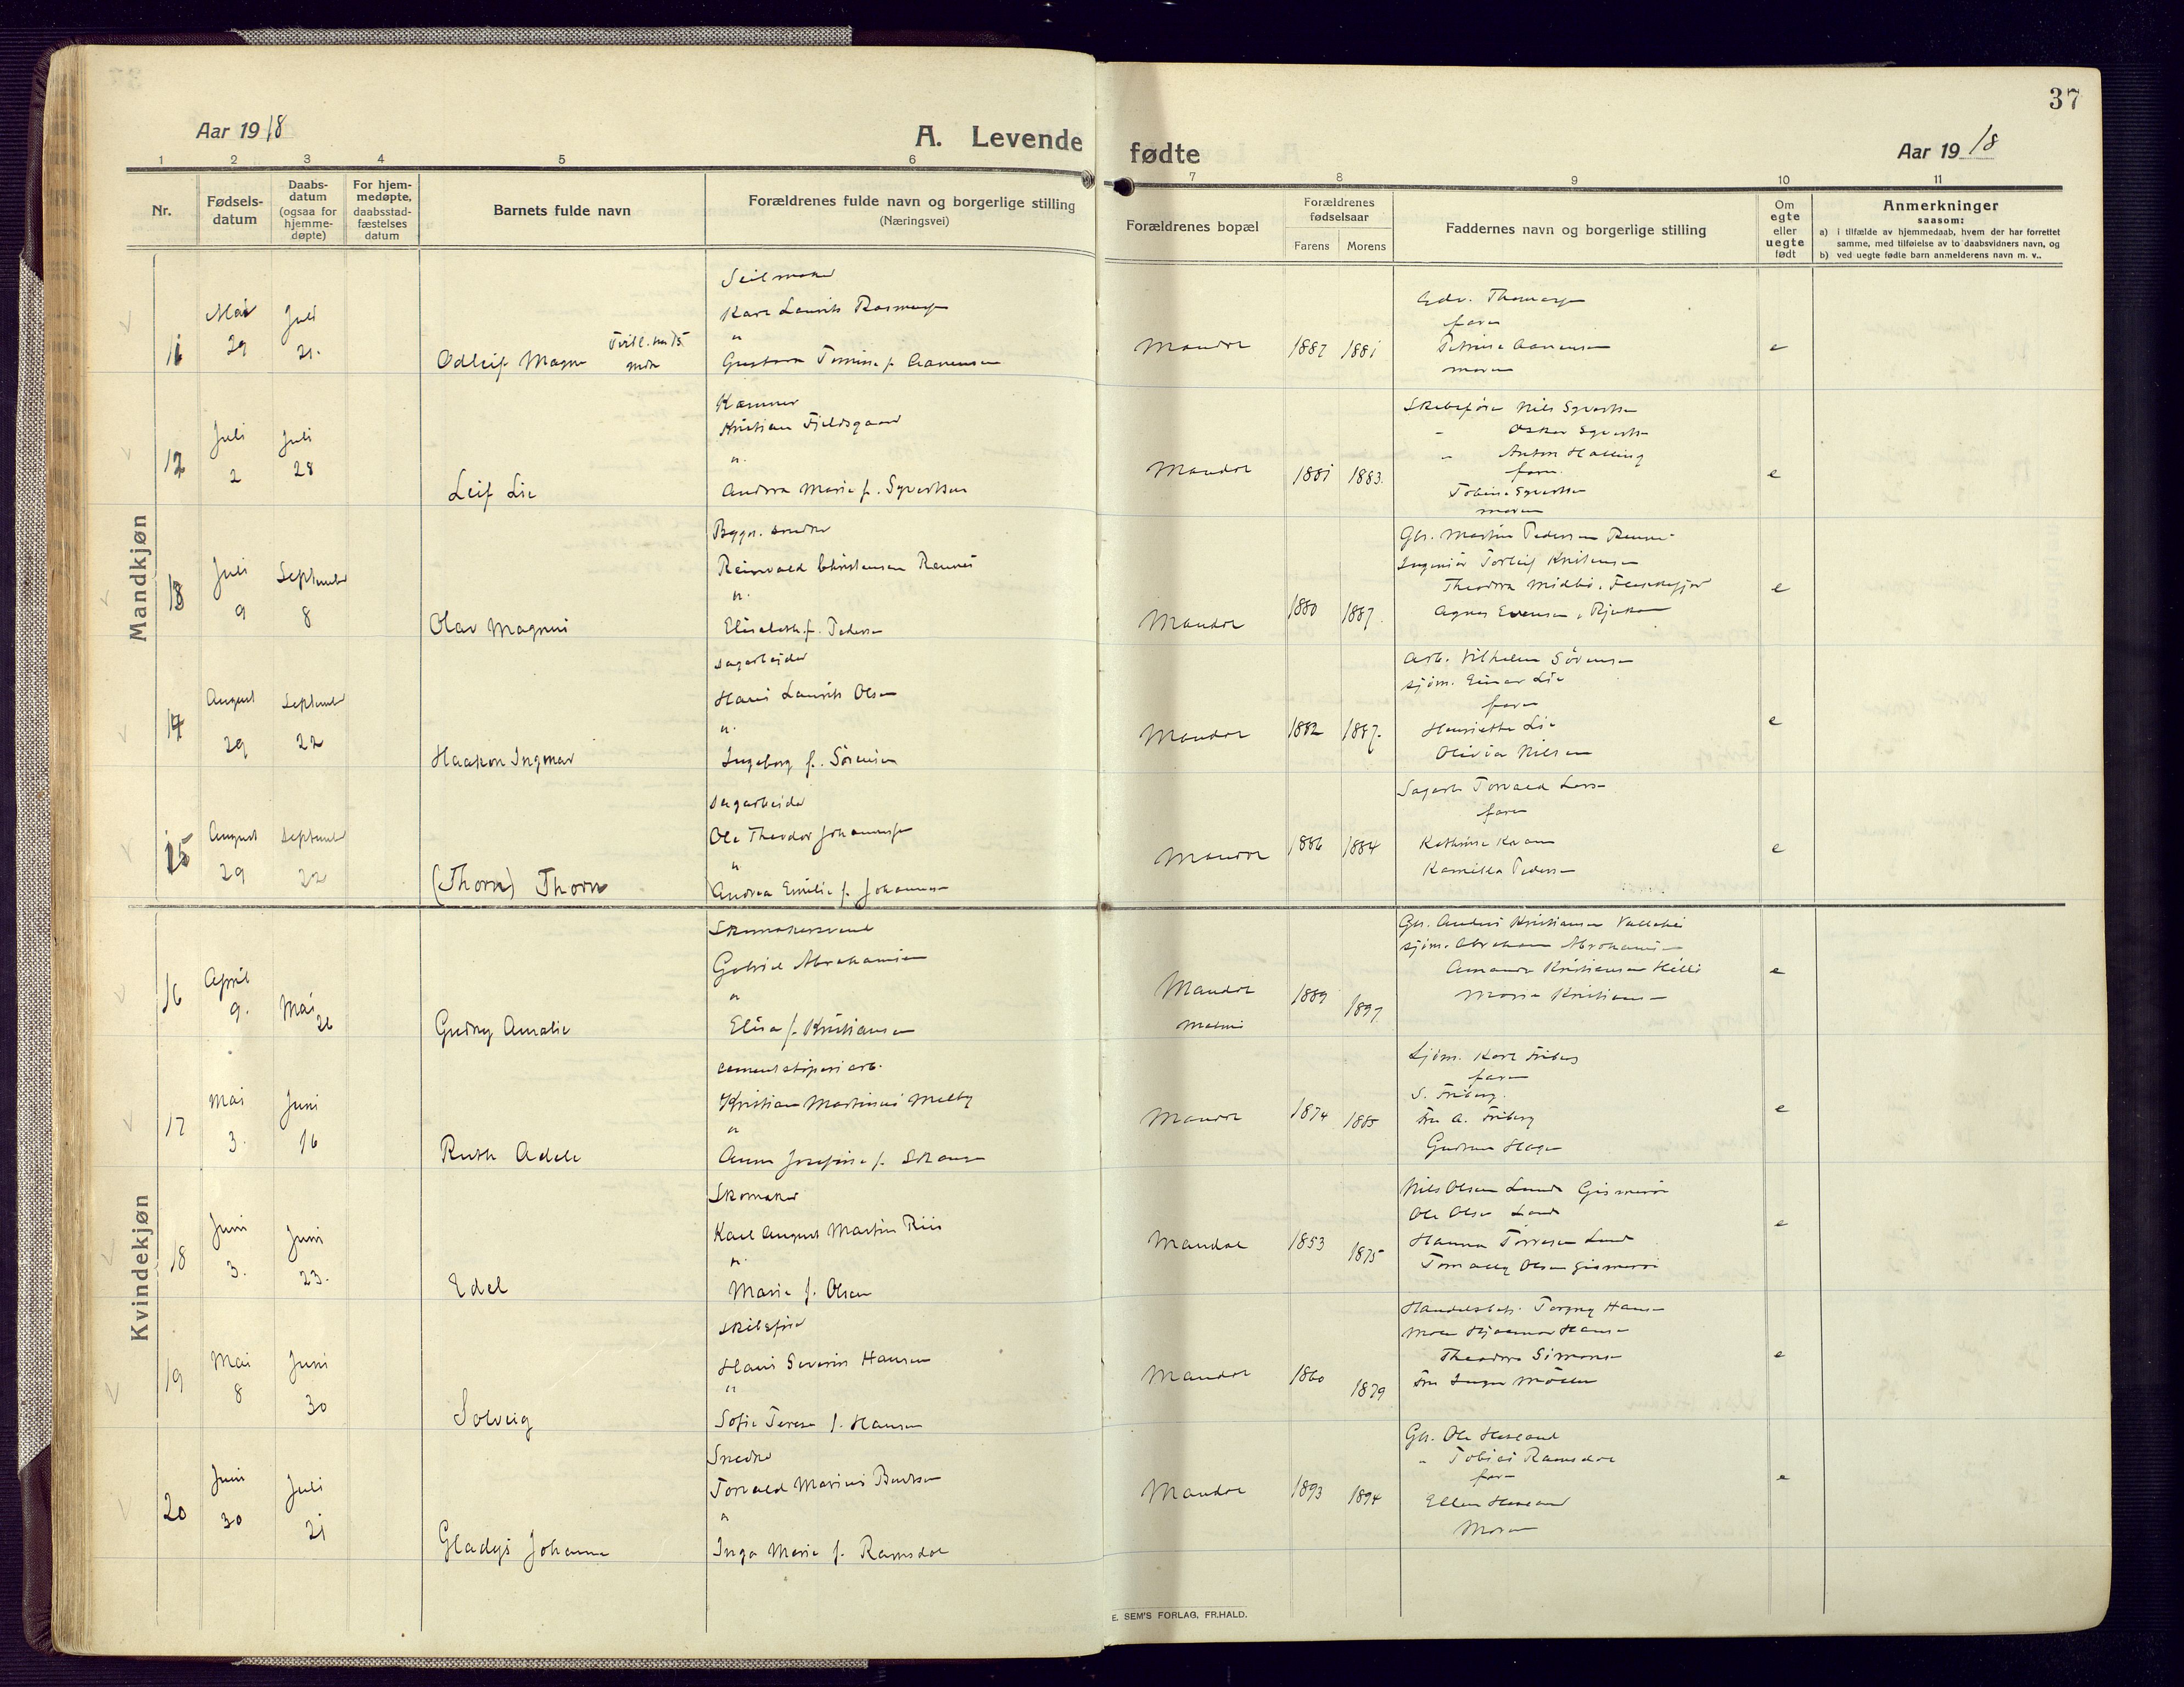 37
Aar 1918
A. Levende fødte
Aar 1918
1 2 3 4 5 6 7 8 9 10 11
Nr.
Fødsels-
datum
Daabs-
datum
(ogsaa for
hjemme-
døpte)
For hjem-
medøpte,
daabsstad-
fæstelses
datum
Barnets fulde navn
Forældrenes fulde navn og borgerlige stilling
(Næringsvei)
Forældrenes bopæl
Forældrenes
fødselsaar
Farens Morens
Faddernes navn og borgerlige stilling
Om
egte
eller
uegte
født
Anmerkninger
saasom:
a) i tilfælde av hjemmedaab, hvem der har forrettet
samme, med tilføielse av to daabsvidners navn, og
b) ved uegte fødte barn anmelderens navn m. v..
Mandkjøn
11
Mai 29
Juli 21.
Odleif Magne
Seilmaker
Karl Laurits Rasmussen
Gustava f. Aanensen
Mandal
1887 1881
Edv. Thomassen
faren
Petrine Aanensen
moren
e
12
Juli 2
Juli 28
Leif Lie
Kæmner
Kristian Fjeldsgaard
Andrea Marie f. Syvertsen
Mandal
1881 1883.
Skibsfører Nils Syvertsen
" Oskar Syvertsen
" Anton Halling
faren
Tobine Syvertsen
moren
e
13
Juli 9
September 8
Olav Magnus
Bygn. snedker
Reinvald Christensen Rennes
Elisabeth f. Pedersen
Mandal
1880 1887.
Gbr. Martin Pedersen
Ingeniør Torleif Kristensen
Theodora Midbø, Flekkefjord
Agnes Evensen, Rjukan
e
14
August 29
September 22
Haakon Ingmar
Sagarbeider
Hans Laurits Olsen
Ingeborg f. Sørensen
Mandal
1882 1887.
Arb. Vilhelm Sørensen
sjøm. Einar Lie
faren
Henriette Lie
Olivia Nilsen
e
15
August 29
September 22
(Thorn) Thorn
Sagarbeider
Ole Theodor Johannessen
Andrea Emilie f. Johannessen
Mandal
1886 1884
Sagarb. Torvald Larsen
faren
Kathrine
Kamilla Pedersen
e
Kvindekjøn
16
April 9.
Mai 26
Gudny Amalie
Skomakersvend
Gabriel Abrahamsen
Elise f. Kristiansen
Mandal
Malmø
1889 1897
Gbr. Anders Kristiansen Vallehei
sjøm. Abraham Abrahamsen
Amanda Kristiansen
Marie Kristiansen
e
17
Mai 3.
Juni 16
Ruth Adele
cementstøperiarb.
Kristian Martinius Melby
Anna Josefine f.
Mandal
1874 1885
Sjøm. Karl Friberg
faren
S. Friberg
Fru A. Friberg
Gudrun Hagen
e
18
Juni 3.
Juni 23.
Edel
Skomaker
Karl August Martin Riis
Marie f. Olsen
Mandal
1853 1875
Nils Olsen Lunde Gismerøi
Ole Olsen Lunde
Hanna Torresen Lund
Olsen Gismerøi
e
19
Mai 8
Juni 30
Solveig
Skibsfører
Hans Severin Hansen
Sofie Terese f. Hansen
Mandal
1860 1879
Handelsbetj. Torfrey Hansen
Hjalmar Hansen
Theodora Simonsen
Fru Inger Møller
e
20
Juni 30
Juli 21
Gladys Johanne
Snedker
Torvald Marius Berntsen
Inga Marie f. Ramsdal
Mandal
1893 1894
Gbr. Ole Heseland
" Tobias Ramsdal
far
Ellen Heseland
Moren
e
E. SEM'S FORLAG, FR.HALD.